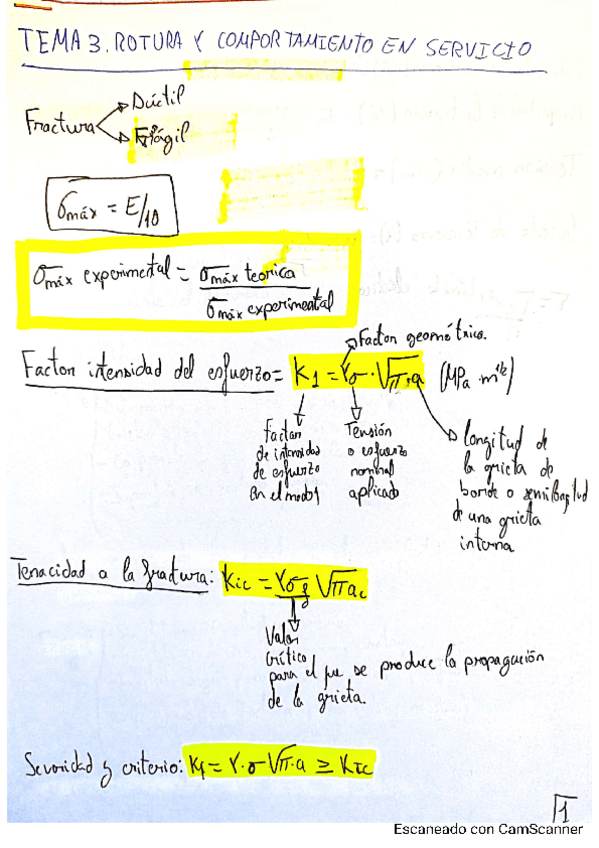 TEMA 3. ROTURA Y COMPORTAMIENTO EN SERVICIO
Fractura
Dúctil
Frágil
σmáx = E/10
σmáx experimental = σmáx teorica / σmáx experimental
Factor geométrico.
Factor intensidad del esfuerzo = K1 = Yσ·√π·a (MPa·m^1/2)
Factor
de intensidad
de esfuerzo
en el modo 1
Tensión
o esfuerzo
nominal
aplicado
longitud de
la grieta de
borde o semilongitud
de una grieta
interna
Tenacidad a la fractura: KIC = Yσf √πac
Valor
crítico
para el que se produce la propagación
de la grieta.
Severidad y criterio: K1 = Y·σ√π·a ≥ KIC
1
Escaneado con CamScanner